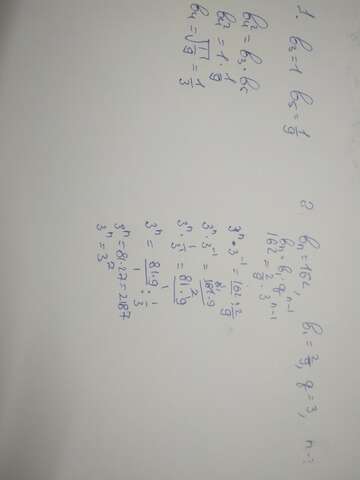 1. b₃=1 b₅=1/9
b₄²=b₃·b₅
b₄²=1·1/9
b₄=√1/9=1/3
2. bₙ=162, b₁=2/9, q=3, n-?
bₙ=b₁·qⁿ⁻¹
162=2/9·3ⁿ⁻¹
3ⁿ·3⁻¹=162:2/9
3ⁿ·3⁻¹=162·9/2
3ⁿ·1/3=81·9/1
3ⁿ=81·9/1:1/3
3ⁿ=81·27=2187
3ⁿ=3⁷